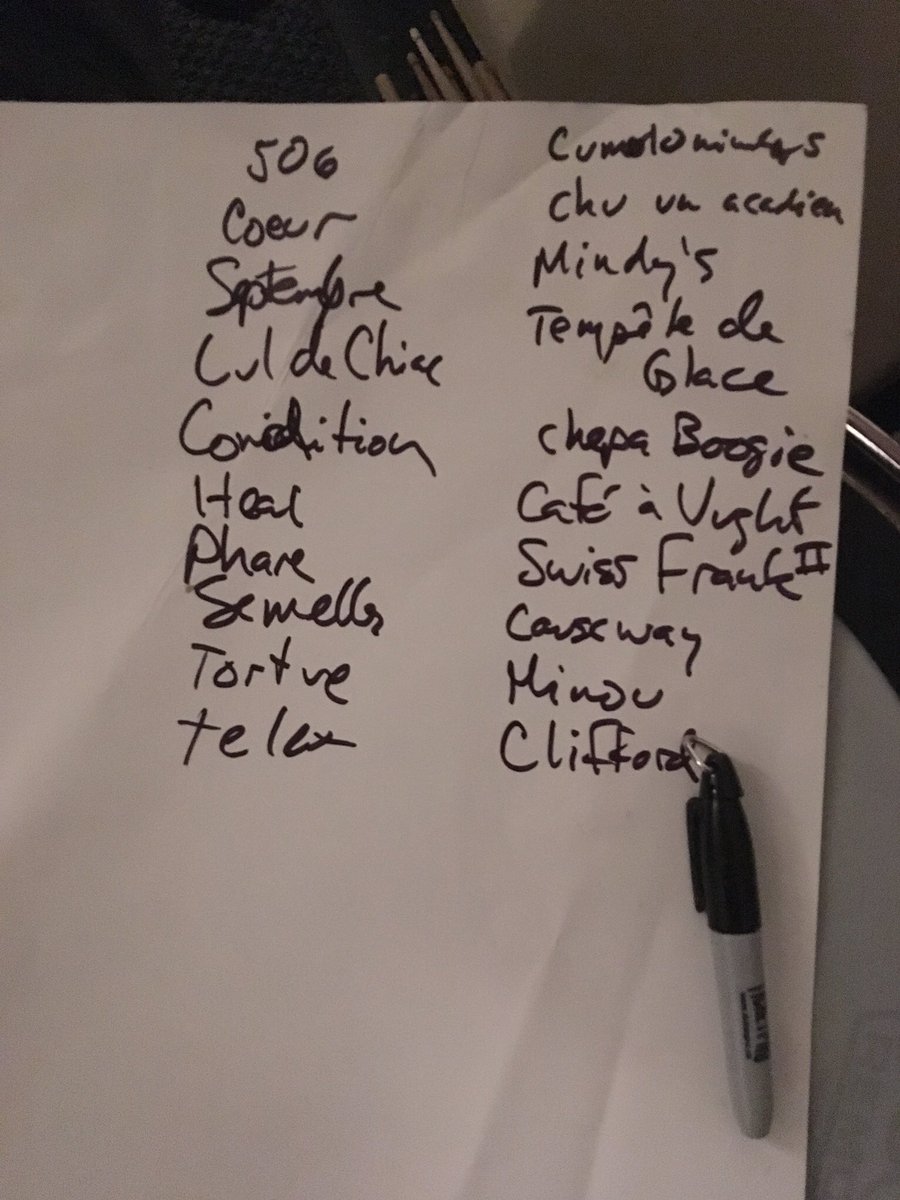 506
Coeur
Septembre
Cul de Chiac
Condition
Heal
Phare
Semelles
Tortue
telex
Cumulonimbus
Chu un acadien
Mindy's
Tempête de
Glace
chepa Boogie
Café à Vught
Swiss Frank II
Causeway
Minou
Clifford